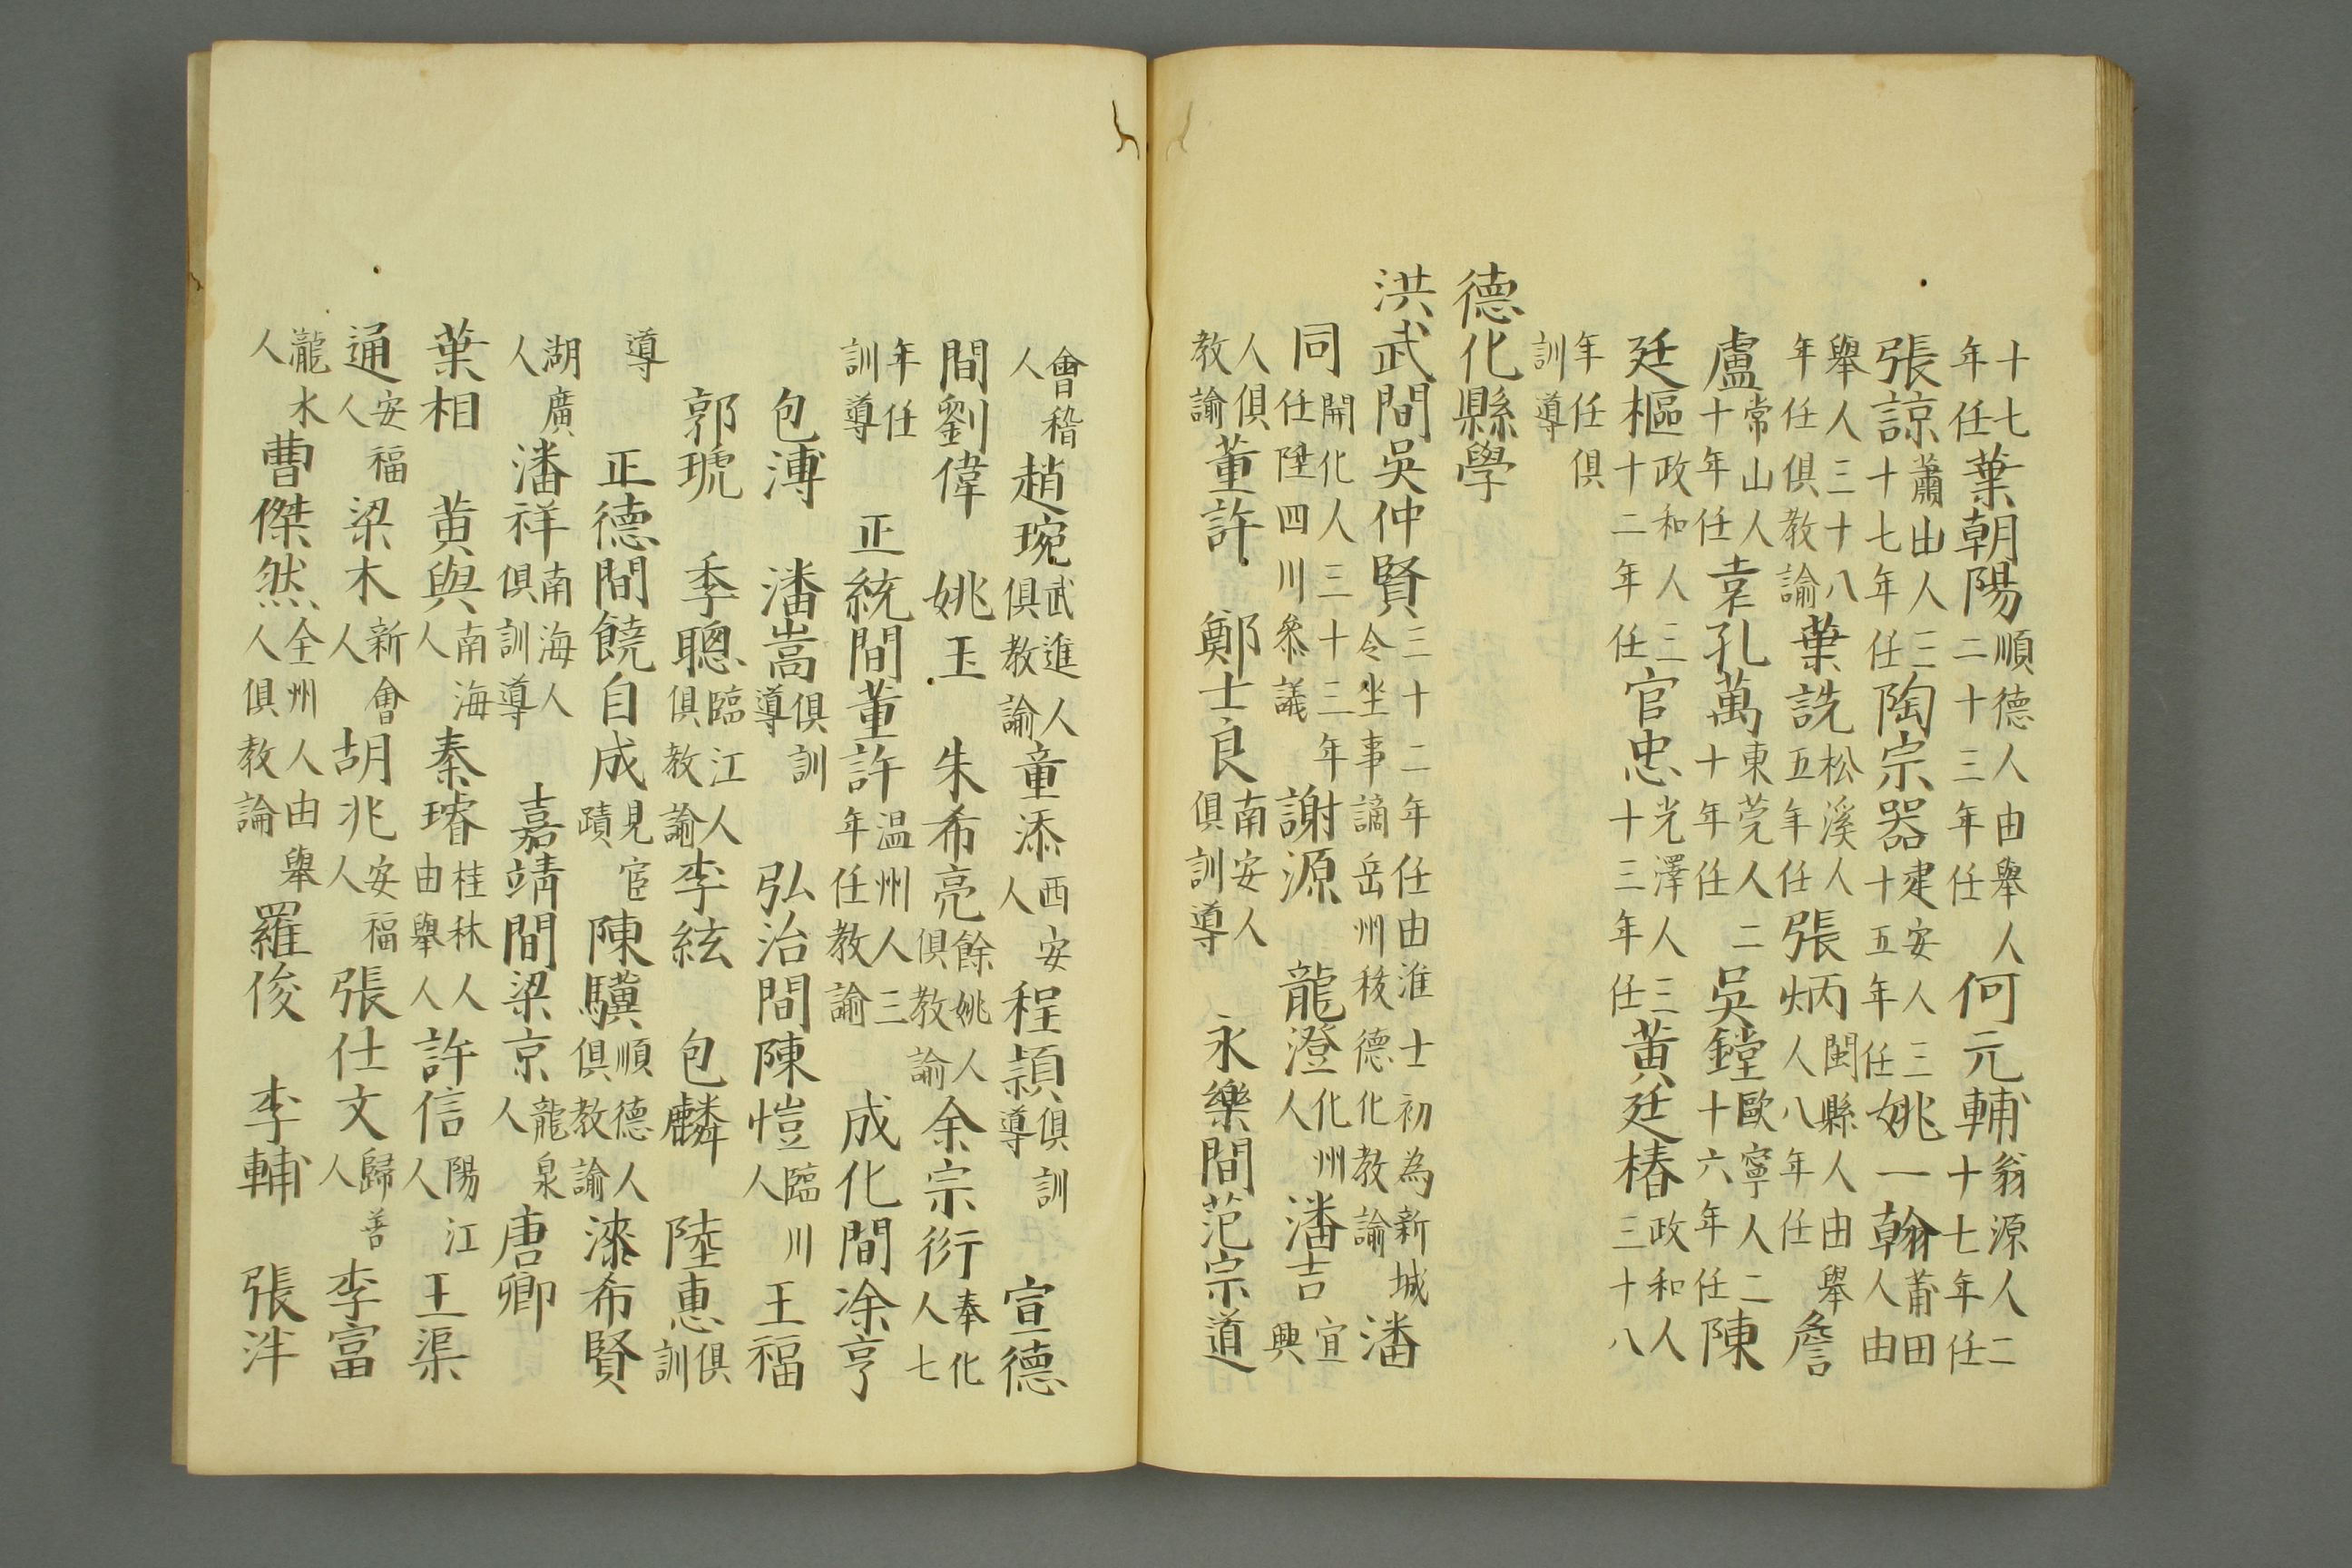 十七年任葉朝陽順德人由舉人二十三年任何元輔翁源人二十七年任
張諒蕭山人三十七年任陶宗器建安人三十五年任姚一翰莆田人由
舉人三十八年任俱教諭葉詵松溪人五年任張炳閩縣人由舉人八年任詹
盧常山人十年任袁孔萬東莞人二十年任吳鏜歐寧人二十六年任陳
廷樞政和人三十二年任官忠光澤人三十三年任黃廷椿政和人三十八
年任俱訓導
德化縣學
洪武間吳仲賢三十二年任由進士初為新城令坐事謫岳州移德化教諭潘
同開化人三十三年任陞四川叅議謝源龍澄化州人潘吉宜興
人俱教諭董許鄭士良南安人俱訓導永樂間范宗道
會稽人趙琬武進人俱教諭童添西安人程頴俱訓導宣德
間劉偉姚玉朱希亮餘姚人俱教諭余宗衍奉化人七
年任訓導正統間董許温州人三年任教諭成化間凃亨
包溥潘嵩俱訓導弘治間陳愷臨川人王福
郭琥季聰臨江人俱教諭李絃包麟陸惠俱訓
導正德間饒自成見宦蹟陳驥順德人俱教諭漆希賢
湖廣人潘祥南海人俱訓導嘉靖間梁京龍泉人唐卿
葉相黃與南海人秦璿桂林人由舉人許信陽江人王渠
通安福人梁木新會人胡兆安福人張仕文歸善人李富
瀧水人曹傑然全州人由舉人俱教論羅俊李輔張泮